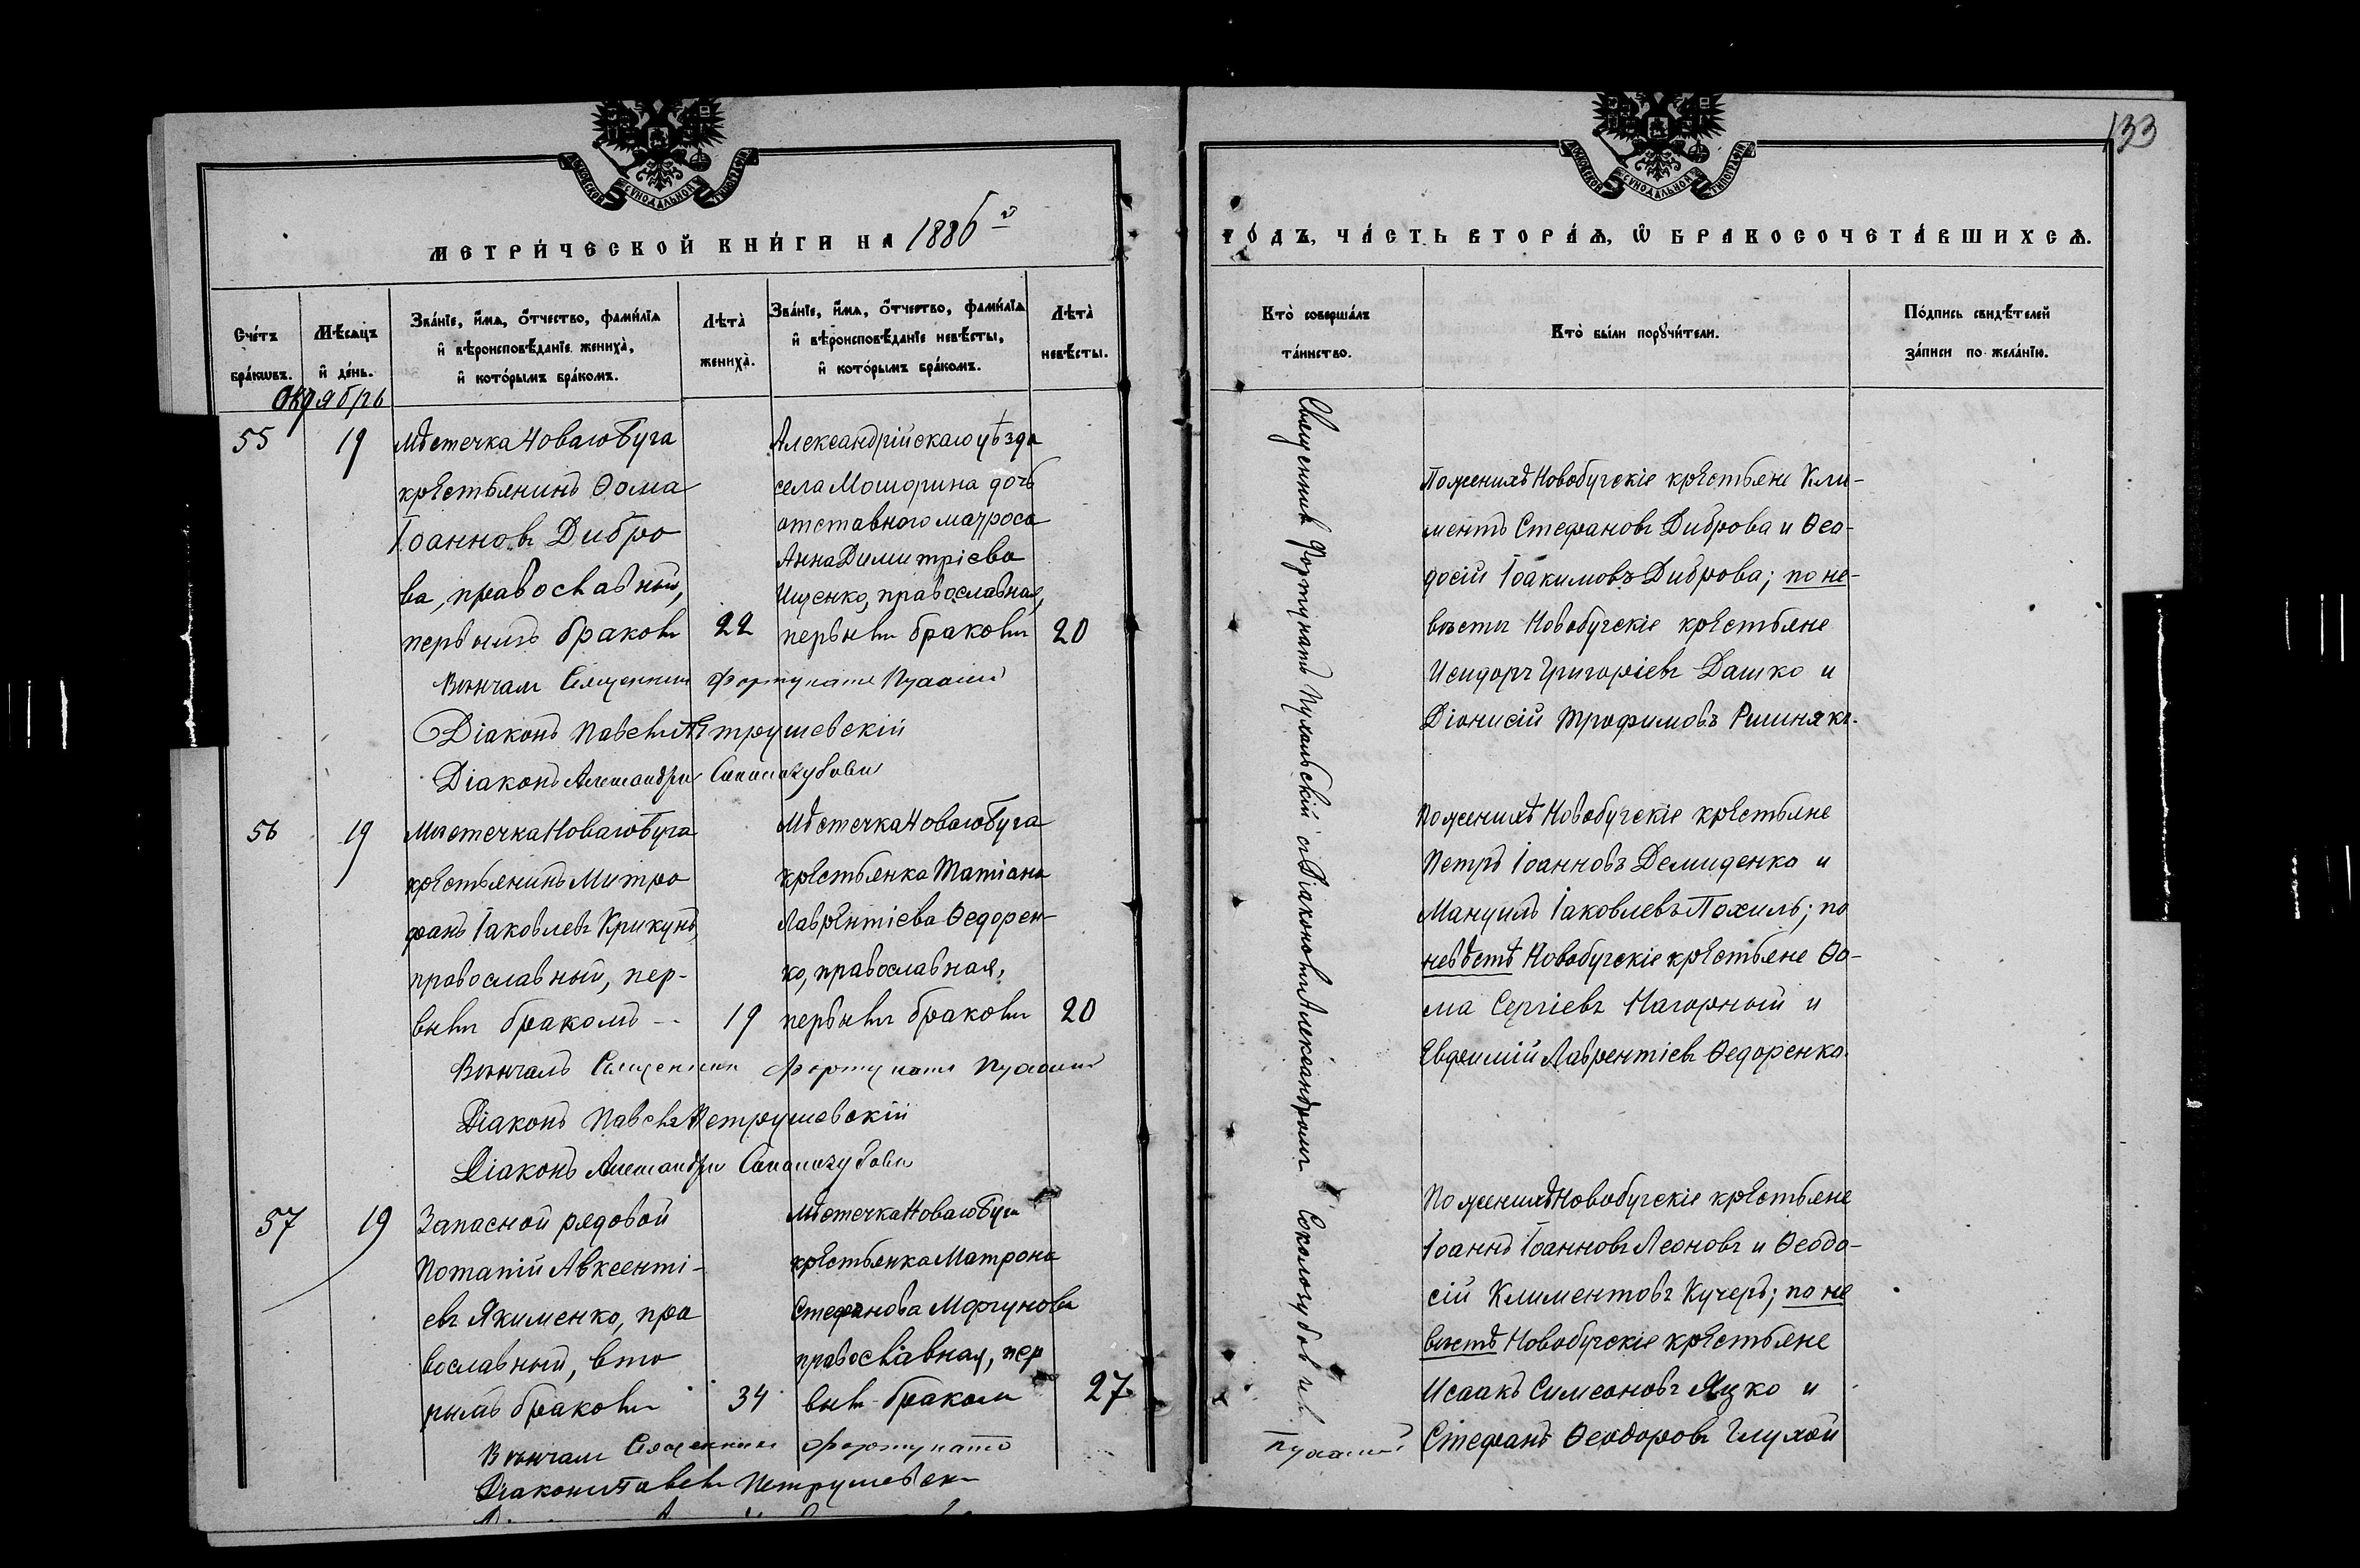 133
МОСКОВСКОЙ СѴНОДАЛЬНОЙ ТИПОГРАФІИ
МЕТРИ́ЧЕСКОЙ КНИ́ГИ НА 1886й
Сче́тъ бра́кѡвъ.
Мѣ́сяцъ и҆ де́нь.
Зва́нїе, и҆́мѧ, ѻ҆́тчество, фами́лїѧ
и҆ вѣроисповѣ́данїе жениха̀,
и҆ кото́рымъ бра́комъ.
Лѣта̀ жениха̀.
Зва́нїе, и҆́мѧ, ѻ҆́тчество, фами́лїѧ
и҆ вѣроисповѣ́данїе невѣ́сты,
и҆ кото́рымъ бра́комъ.
Лѣта̀ невѣ́сты.
Октябрь
55
19
Мѣстечка Новаго Буга
крестьянинъ Ѳома
Іоанновъ Дибро
ва, православный,
первымъ бракомъ
22
Александрійскаго уѣзда
села Мошорина дочь
отставного матроса
Анна Димитріева
Ищенко, православная,
первымъ бракомъ
20
Вѣнчалъ Священникъ Фортунатъ
Діаконъ Павелъ Петрушевскій
Діаконъ Александръ
56
19
Мѣстечка Новаго Буга
крестьянинъ Митро
фанъ Іаковлевъ Крикунъ,
православный, пер-
вымъ бракомъ --
19
Мѣстечка Новаго Буга
крестьянка Татіана
Лаврентіева Ѳедорен-
ко, православная,
первымъ бракомъ
20
Вѣнчалъ Священникъ Фортунатъ
Діаконъ Павелъ Петрушевскій
Діаконъ Александръ
57
19
Запасной рядовой
Потапій Авксенті-
евъ Якименко, пра
вославный, вто
рымъ бракомъ
34
Мѣстечка Новаго Буга
крестьянка Матрона
Стефанова Моргунова
православная, пер
вымъ бракомъ
27
Вѣнчалъ Священникъ Фортунатъ
Діаконъ Павелъ Петрушевскі
МОСКОВСКОЙ СѴНОДАЛЬНОЙ ТИПОГРАФІИ
ГО́ДЪ, ЧА́СТЬ ВТОРА́Ѧ, Ѽ БРАКОСОЧЕТА́ВШИХСѦ.
Кто̀ соверша́лъ
та́инство.
Кто̀ бы́ли порꙋчи́тели.
По́дпись свидѣ́телей
за́писи по жела́нїю.
Священникъ Фортунатъ Пухальскій съ Діакономъ Александромъ Соколозубовымъ.
По женихѣ Новобугскіе крестьяне Кли-
ментъ Стефановъ Диброва и Ѳео-
досій Іоакимовъ Диброва; по не-
вѣстѣ Новобугскіе крестьяне
Исидоръ Григоріевъ Дашко и
Діонисій Трофимовъ Ришнякъ.
По женихѣ Новобугскіе крестьяне
Петръ Іоанновъ Демиденко и
Мануилъ Іаковлевъ Похиль; по
невѣстѣ Новобугскіе крестьяне Ѳо-
ма Сергіевъ Нагорный и
Евфимій Лаврентіевъ Ѳедоренко.
По женихѣ Новобугскіе крестьяне
Іоаннъ Іоанновъ Леоновъ и Ѳеодо-
сій Климентовъ Кучеръ; по не
вѣстѣ Новобугскіе крестьяне
Исаакъ Симеоновъ Яцко и
Стефанъ Ѳеодоровъ Глухой